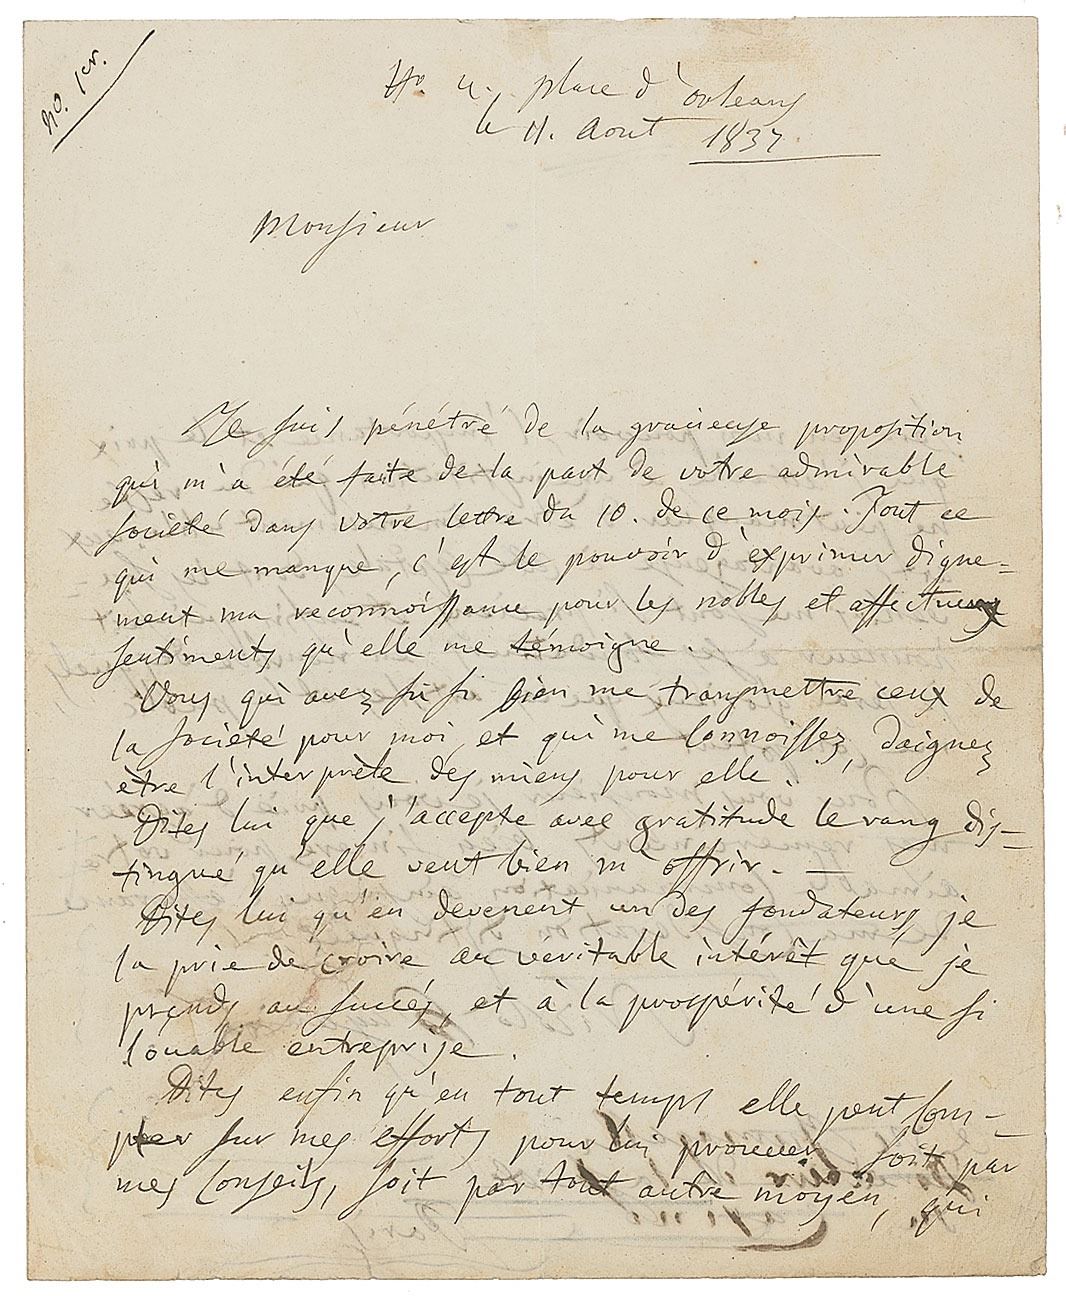 no. 1er.
No. 4. place d'orleans
le 11. Aout 1837.
Monsieur
Je suis pénétré de la gracieuse proposition
qui m'a été faite de la part de votre admirable
société dans votre lettre du 10. de ce mois. Tout ce
qui me manque, c'est le pouvoir d'exprimer digne=
ment ma reconnoissance pour les nobles et affectueux
sentiments qu'elle me témoigne.
Vous qui avez sû si bien me transmettre ceux de
la société pour moi, et qui me connoissez, daignez
être l'interprète des miens pour elle.
Dites lui que j'accepte avec gratitude le rang dis=
tingué qu'elle veut bien m'offrir. —
Dites lui qu'en devenent un des fondateurs, je
la prie de croire au véritable intérêt que je
prends au succés, et à la prospérité d'une si
louable entreprise.
Dites enfin qu'en tout temps elle peut com=
pter sur mes efforts pour lui prouver soit par
mes conseils, soit par tout autre moyen, qui